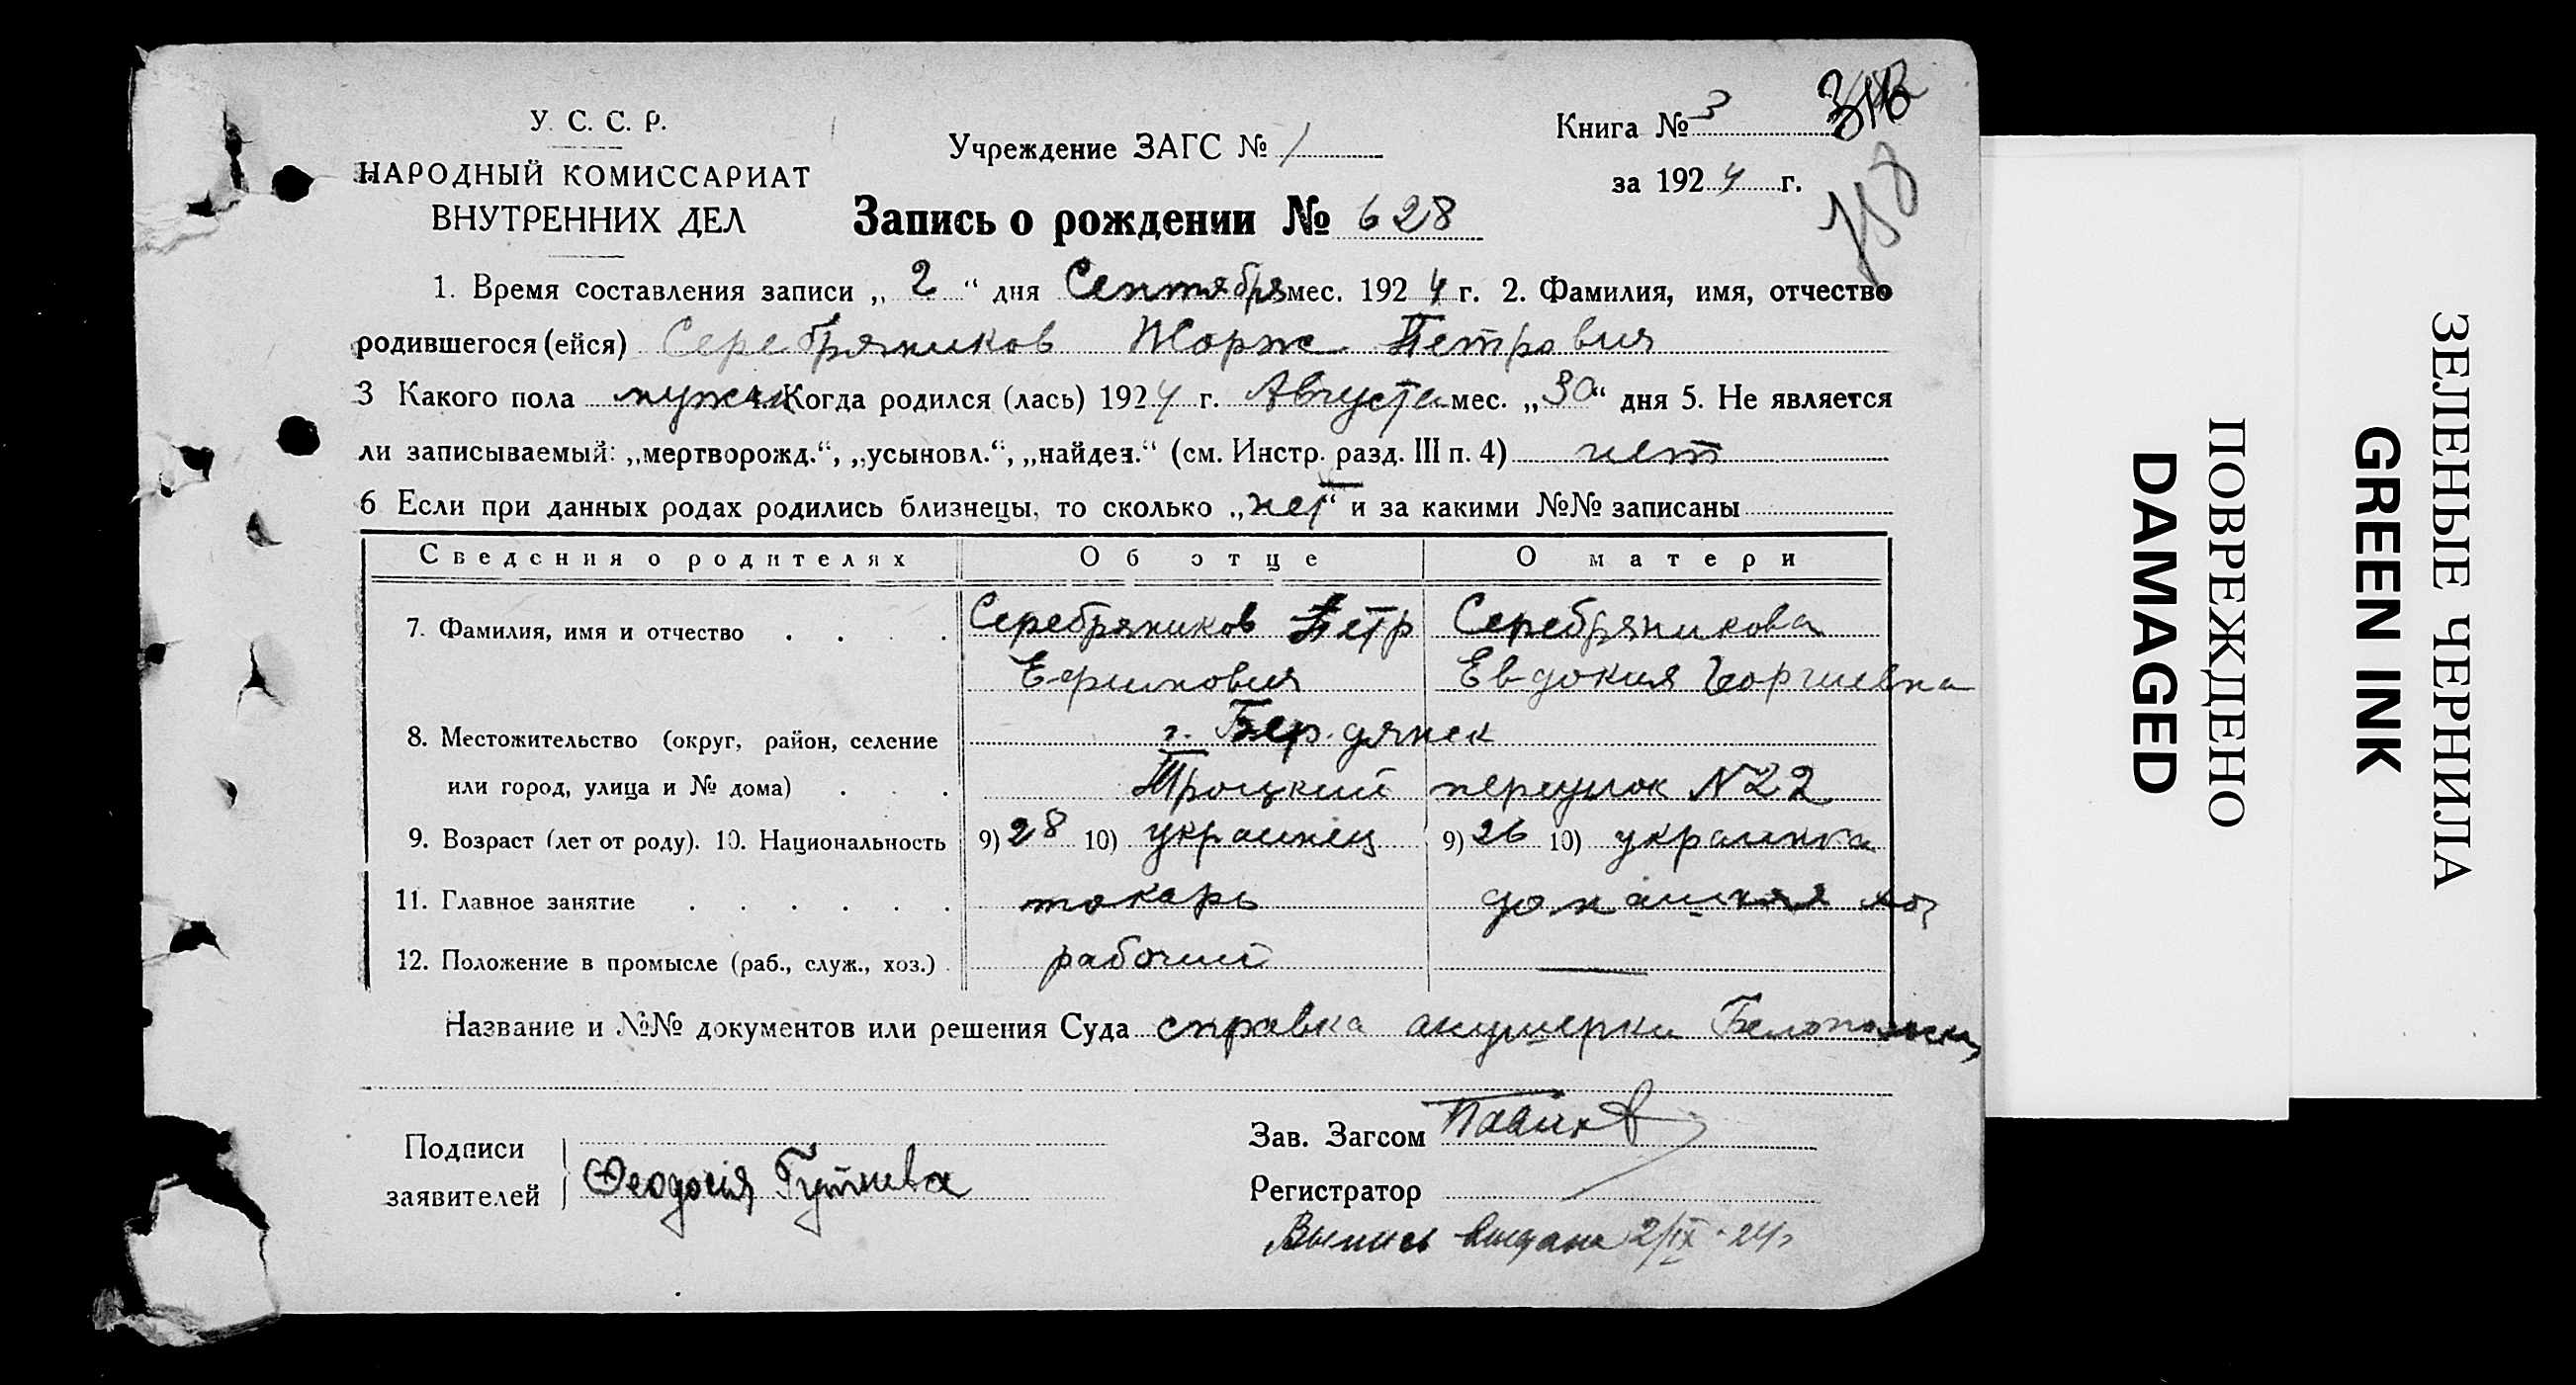 У. С. С. Р.
НАРОДНЫЙ КОМИССАРИАТ
ВНУТРЕННИХ ДЕЛ
Учреждение ЗАГС № 1
Книга № 3
за 1924 г.
Запись о рождении № 628
1. Время составления записи „2“ дня Сентября мес. 1924 г. 2. Фамилия, имя, отчество
родившегося (ейся) Серебряников Жорж Петрович
3 Какого пола мужск 4. Когда родился (лась) 1924 г. Августа мес. „30“ дня 5. Не является
ли записываемый: „мертворожд.“, „усыновл.“, „найден.“ (см. Инстр. разд. III п. 4) нет
6 Если при данных родах родились близнецы, то сколько „нет“ и за какими №№ записаны
Сведения о родителях Об отце О матери
7. Фамилия, имя и отчество Серебряников Петр Серебряникова
Ефимович Евдокия Георгиевна
8. Местожительство (округ, район, селение г. Бердянск
или город, улица и № дома) Троцкий переулок N 22
9. Возраст (лет от роду). 10. Национальность 9) 28 10) украинец 9) 26 10) украинка
11. Главное занятие токарь домашняя хоз
12. Положение в промысле (раб., служ., хоз.) рабочий —
Название и №№ документов или решения Суда справка акушерки
Подписи
заявителей Феодосія
Зав. Загсом
Регистратор
Выпись выдана 2/IX-24г
ПОВРЕЖДЕНО
DAMAGED
ЗЕЛЕНЫЕ ЧЕРНИЛА
GREEN INK